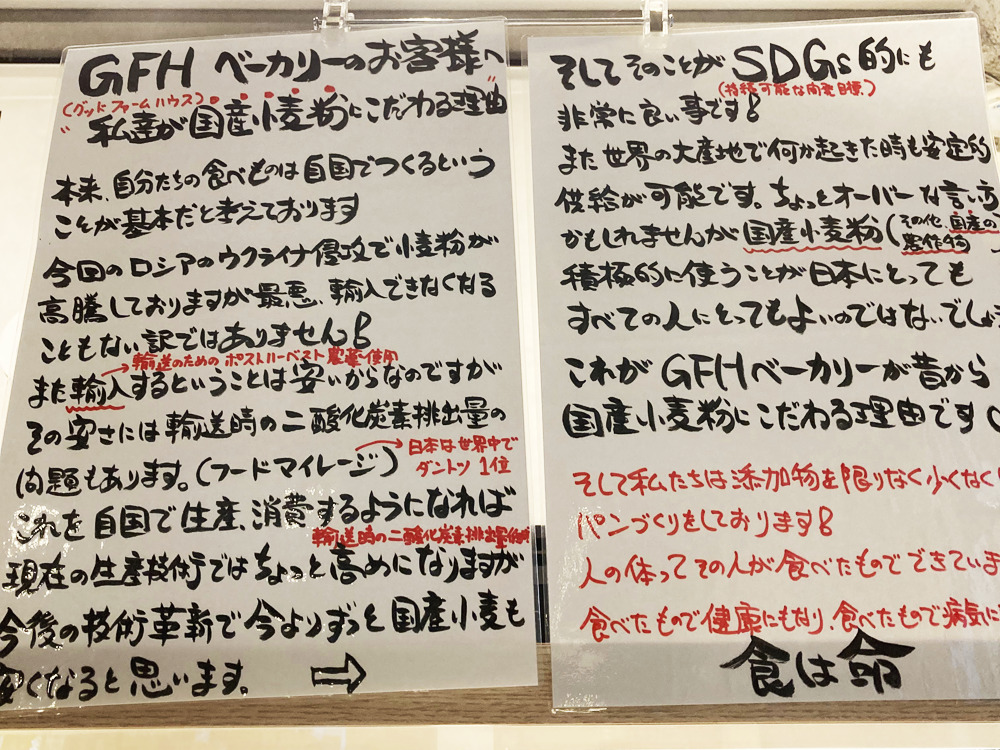 GFH ベーカリーのお客様へ
(グッドファームハウス)
"私達が国産小麦粉にこだわる理由"
本来、自分たちの食べものは自国でつくるという
ことが基本だと考えております
今回のロシアのウクライナ侵攻で小麦粉が
高騰しておりますが最悪、輸入できなくなる
こともない訳ではありません!
輸送のための ポストハーベスト 農薬使用
また輸入するということは安いからなのですが
その安さには輸送時の二酸化炭素排出量の
問題もあります。(フードマイレージ)
日本は世界中で
ダントツ 1位
これを自国で生産、消費するようになれば
輸送時の二酸化炭素排出量
現在の生産技術ではちょっと高めになりますが
今後の技術革新で今よりずっと国産小麦も
安くなると思います。 ⇨
そしてそのことが SDGs的にも
(持続可能な開発目標)
非常に良い事です!
また世界の大産地で何か起きた時も安定的
供給が可能です。ちょっとオーバーな言い方
かもしれませんが国産小麦粉(その他、国産の
農作物
積極的に使うことが日本にとっても
すべての人にとってもよいのではないでしょ
これがGFHベーカリーが昔から
国産小麦粉にこだわる理由です
そして私たちは添加物を限りなく少なく
パンづくりをしております!
人の体ってその人が食べたものでできていま
食べたもので健康にもなり、食べたもので病気に
食は命